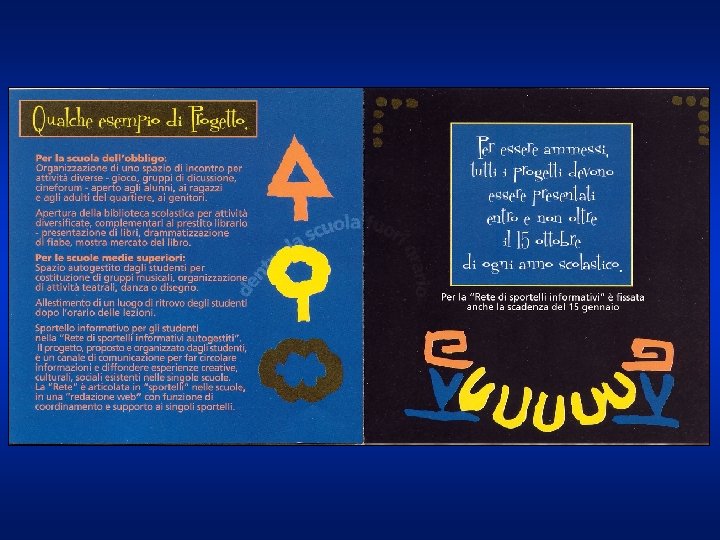 Qualche esempio di Progetto.
Per la scuola dell'obbligo:
Organizzazione di uno spazio di incontro per
attività diverse - gioco, gruppi di dicussione,
cineforum - aperto agli alunni, ai ragazzi
e agli adulti del quartiere, ai genitori.
Apertura della biblioteca scolastica per attività
diversificate, complementari al prestito librario
- presentazione di libri, drammatizzazione
di fiabe, mostra mercato del libro.
Per le scuole medie superiori:
Spazio autogestito dagli studenti per
costituzione di gruppi musicali, organizzazione
di attività teatrali, danza o disegno.
Allestimento di un luogo di ritrovo degli studenti
dopo l'orario delle lezioni.
Sportello informativo per gli studenti
nella "Rete di sportelli informativi autogestiti".
Il progetto, proposto e organizzato dagli studenti,
è un canale di comunicazione per far circolare
informazioni e diffondere esperienze creative,
culturali, sociali esistenti nelle singole scuole.
La "Rete" è articolata in "sportelli" nelle scuole,
in una "redazione web" con funzione di
coordinamento e supporto ai singoli sportelli.
la scuola
Per essere ammessi,
tutti i progetti devono
essere presentati
entro e non oltre
il 15 ottobre
di ogni anno scolastico.
Per la "Rete di sportelli informativi" è fissata
anche la scadenza del 15 gennaio